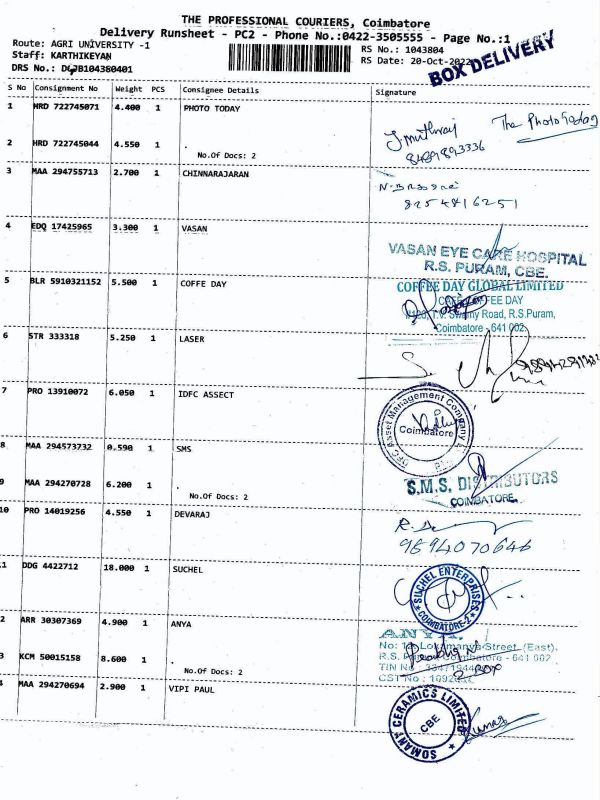 THE PROFESSIONAL COURIERS, Coimbatore
Delivery Runsheet - PC2 - Phone No.:0422-3505555 - Page No.:1
Route: AGRI UNIVERSITY -1
RS No.: 1043804
Staff: KARTHIKEYAN
RS Date: 20-Oct-2022
DRS No.: DCJB104380401
BOX DELIVERY
S No Consignment No Weight PCS Consignee Details Signature
1 HRD 722745071 4.400 1 PHOTO TODAY
The Photo Today
2 HRD 722745044 4.550 1 .
No.Of Docs: 2
8489893336
3 MAA 294755713 2.700 1 CHINNARAJARAN
8254816251
4 EDQ 17425965 3.300 1 VASAN
VASAN EYE CARE HOSPITAL
R.S. PURAM, CBE.
5 BLR 5910321152 5.500 1 COFFE DAY
COFFEE DAY GLOBAL LIMITED
Swamy Road, R.S.Puram,
Coimbatore - 641 002
6 STR 333318 5.250 1 LASER
7 PRO 13910072 6.050 1 IDFC ASSECT
Asset Management Company
Coimbatore
8 MAA 294573732 0.590 1 SMS
9 MAA 294270728 6.200 1 .
No.Of Docs: 2
S.M.S. DISTRIBUTORS
COIMBATORE.
10 PRO 14019256 4.550 1 DEVARAJ
9894070646
1 DDG 4422712 18.000 1 SUCHEL
SUCHEL ENTERPRISES
COIMBATORE-2
2 ARR 30307369 4.900 1 ANYA
ANYA
Lokamanya Street (East),
R.S. Coimbatore - 641 002
3 KCM 50015158 8.600 1 .
No.Of Docs: 2
TIN No
2 BOX
CST No
4 MAA 294270694 2.900 1 VIPI PAUL
SOMANY CERAMICS LIMITED
CBE
Kumar